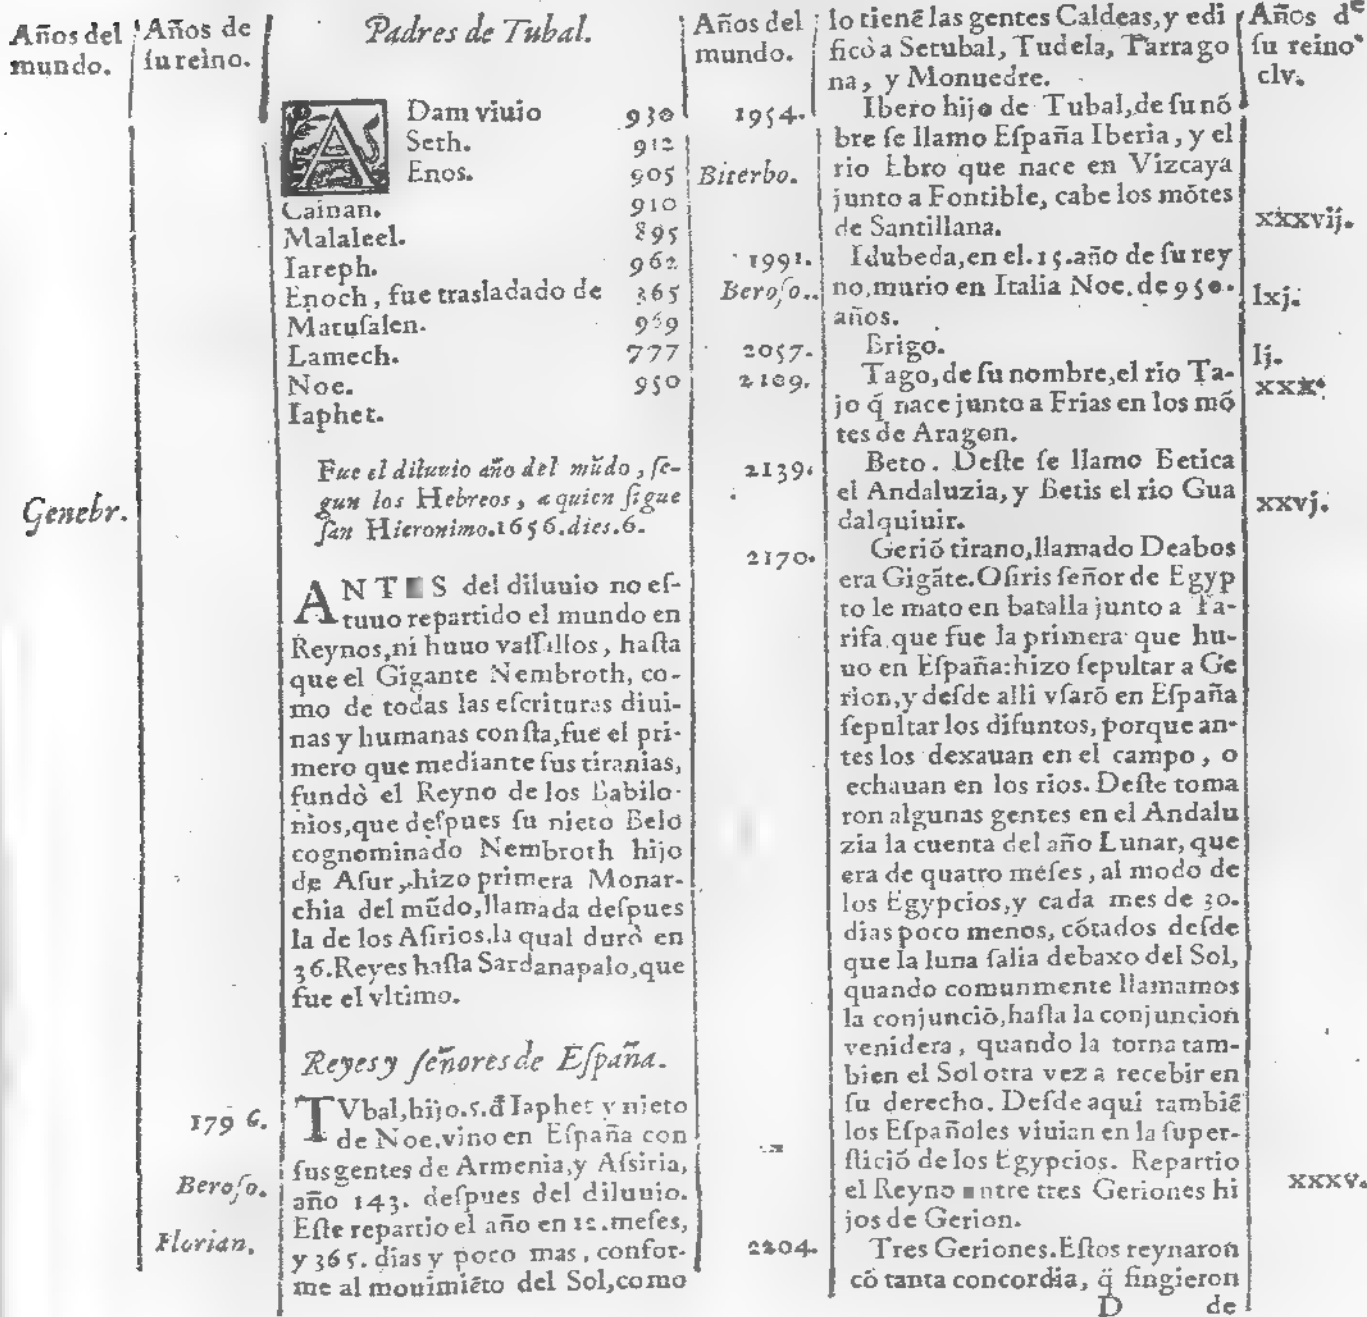 Años del mundo.
Años de
su reino.
Padres de Tubal.
ADam viuio 930
Seth. 912
Enos. 905
Cainan. 910
Malaleel. 895
Iareph. 962
Enoch, fue trasladado de 365
Matuſalen. 969
Lamech. 777
Noe. 950
Iaphet.
Fue el diluuio año del mũdo, ſe-
gun los Hebreos, a quien ſigue
ſan Hieronimo.1656.dies.6.
Genebr.
ANTES del diluuio no eſ-
tuuo repartido el mundo en
Reynos,ni huuo vaſſallos, haſta
que el Gigante Nembroth, co-
mo de todas las eſcrituras diui-
nas y humanas conſta,fue el pri-
mero que mediante ſus tiranias,
fundò el Reyno de los Babilo-
nios,que deſpues ſu nieto Belo
cognominado Nembroth hijo
de Aſur, hizo primera Monar-
chia del mũdo,llamada deſpues
la de los Aſirios,la qual durò en
36.Reyes haſta Sardanapalo,que
fue el vltimo.
Reyes y ſeñores de Eſpaña.
1796.
TVbal,hijo.5.đ Iaphet y nieto
de Noe,vino en Eſpaña con
ſus gentes de Armenia,y Aſsiria,
Beroſo.
año 143. deſpues del diluuio.
Eſte repartio el año en 12.meſes,
Florian.
y 365. dias y poco mas, confor-
me al mouimiẽto del Sol,como
Años del
mundo.
Años de
ſu reino
lo tienẽ las gentes Caldeas,y edi
ficò a Setubal, Tudela, Tarrago
na, y Monuedre.
clv.
1954.
Ibero hijo de Tubal,de ſu nõ
bre ſe llamo Eſpaña Iberia, y el
Biterbo.
rio Ebro que nace en Vizcaya
junto a Fontible, cabe los mõtes
de Santillana.
xxxvij.
1991.
Idubeda,en el.15.año de ſu rey
Beroſo..
no,murio en Italia Noe.de 950.
años.
lxj.
2057.
Brigo.
lj.
2109.
Tago,de ſu nombre,el rio Ta-
jo q̃ nace junto a Frias en los mõ
tes de Aragon.
xxx.
2139.
Beto. Deſte ſe llamo Betica
el Andaluzia, y Betis el rio Gua
dalquiuir.
xxvj.
2170.
Geriõ tirano,llamado Deabos
era Gigãte.Oſiris ſeñor de Egyp
to le mato en batalla junto a Ta-
rifa que fue la primera que hu-
uo en Eſpaña:hizo ſepultar a Ge
rion,y deſde alli vſarõ en Eſpaña
ſepultar los difuntos, porque an-
tes los dexauan en el campo, o
echauan en los rios. Deſte toma
ron algunas gentes en el Andalu
zia la cuenta del año Lunar, que
era de quatro meſes, al modo de
los Egypcios,y cada mes de 30.
dias poco menos, cõtados deſde
que la luna ſalia debaxo del Sol,
quando comunmente llamamos
la conjunciõ,haſta la conjuncion
venidera, quando la torna tam-
bien el Sol otra vez a recebir en
ſu derecho. Deſde aqui tambiẽ
los Eſpañoles viuian en la ſuper-
ſticiõ de los Egypcios. Repartio
el Reyno entre tres Geriones hi
jos de Gerion.
xxxv.
2204.
Tres Geriones.Eſtos reynaron
cõ tanta concordia, q̃ fingieron
D de